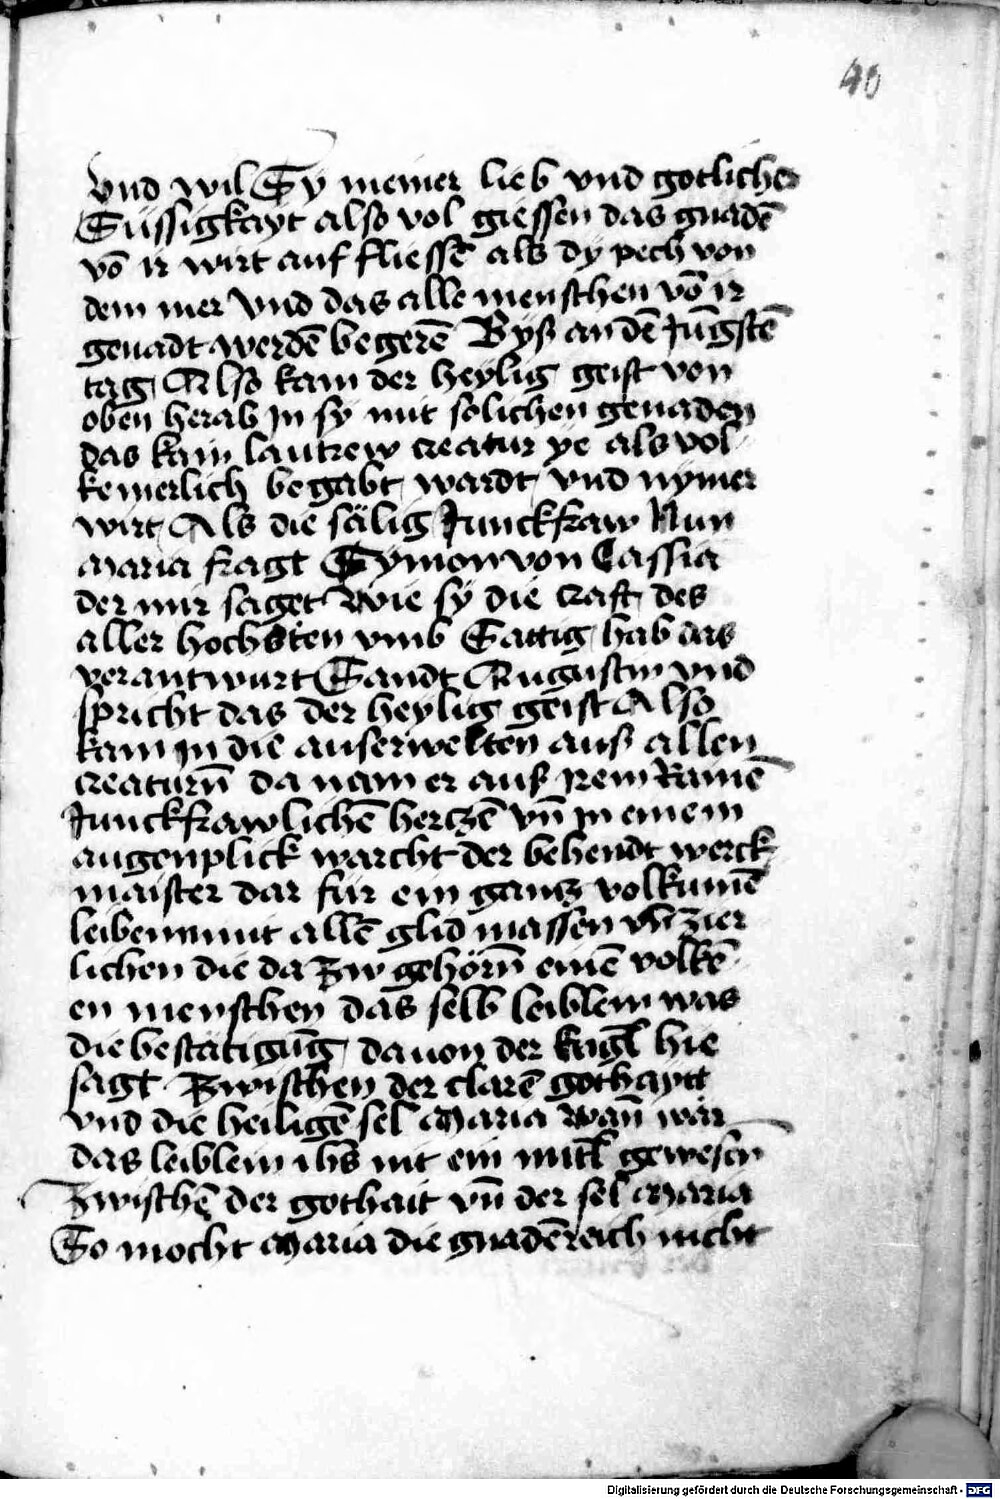 40
vnd wil Sÿ meiner lieb vnd gotlicher
Süssigkayt also vol giessen das gnadē
võ ir wirt auf fliessē als dÿ pech von
dem mer Vnd das alle menschen võ ir
genadt werdē begerē Byß an dē Jūgstē
tag Also kam der heylig geist von
oben herab Jn sÿ mit solichen genaden
das kain lautrew creatur ye als vol
kemerlich begabt wardt vnd nymer
wirt Als die sälig Junckfraw Nun
maria fragt Sÿmon von Cassia
der mir saget Wie sÿ die craft des
aller hochsten vmb Sattig hab das
verantwurt Sandt Augustin vnd
spricht das der heylig geist Also
kam jn die auserwelten auß allen
creaturn̄ da nam er auß jrem Rainē
Junckfrawlichē hertzē vn̄ jn einem
augenplick warcht der behendt werck
maister dar für ein gantz volkumē
leiben mit allē glid massen vn̄ zier
lichen die da zw gehörn̄ einē volkē
en menschen das selb leiblein was
die bestätigūg dauon der kagl̄ hie
sagt Zwischen der clarē gothaytt
vnd die heiligē sel maria Wan̄ wär
das leiblein ihs nit ein mitl̄ gewesen̄
Zwischē der gothait vn̄ der sel maria
So mocht maria die gnadēreich nicht
Digitalisierung gefördert durch die Deutsche Forschungsgemeinschaft - DFG